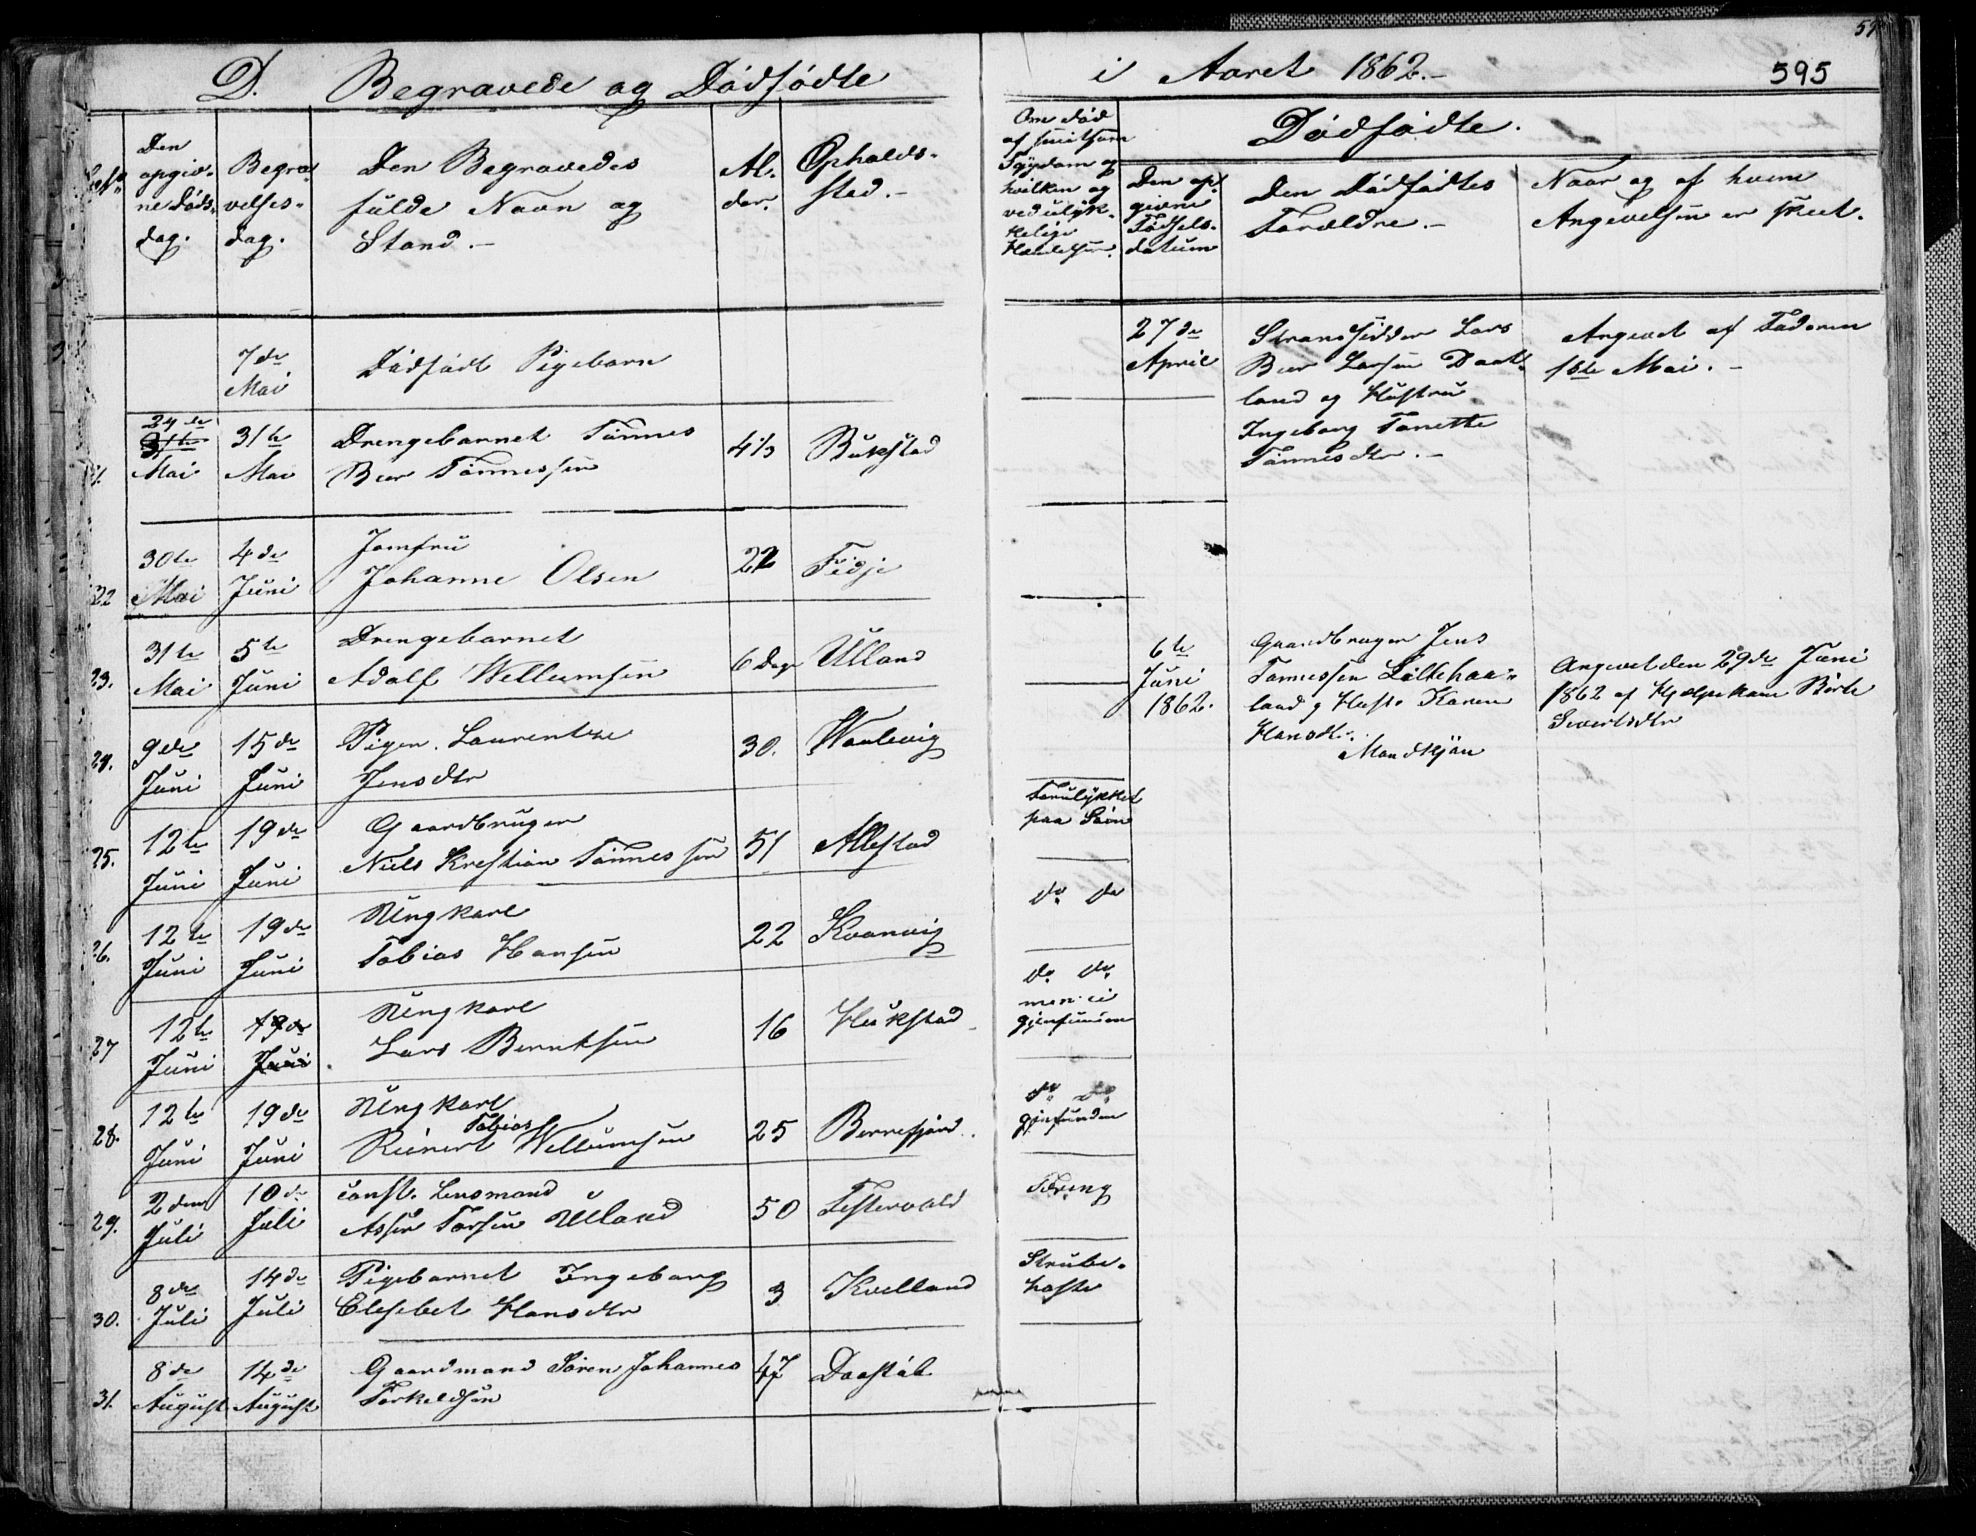 D. Begravede og Dödfödte
i Aaret 1862.-
595
Den opgiv-
ne Döds-
dag.
Begra-
velses-
dag.
Den Begravedes
fulde Navn og
Stand.-
Al-
der.
Opholds-
sted.-
Om död
af smitsom
Sygdom og
hvilken og
ved ulyk-
kelige
Hændelser.
Dödfödte.
Den op-
givne
Födsels-
datum
Den Dödfödtes
Forældre.-
Naar og af hvem
Angivelsen er skeet.
7de
Mai
Dödfödt Pigebarn
27de
April
Strandsidder Lars
Beer Larsen Daat-
land og Hustru
Ingeborg Tonette
Tönnesdtr.-
Angivet af Faderen
1ste Mai.-
24de
31te
Mai
31te
Mai
Drengebarnet Tönnes
Beer Tönnessen
4 1/3
Bukstad
22
30te
Mai
4de
Juni
Jomfru
Johanne Olsen
22
Fidje
23.
31te
Mai
5te
Juni
Drengebarnet
Adolf Wellumsen
6 Dage
Ulland
6te
Juni
1862.
Gaardbruger Jens
Tönnessen Lillehaa-
land og Hust. Karen
Hansdtr.
Mandkjön
Angivet den 29de Juni
1862 af Hjelpekone Börte
Sivertsdtr
24.
9de
Juni
15de
Juni
Pigen Laurentze
Jensdtr
30.
Waulevig
25.
12te
Juni
19de
Juni
Gaardbruger
Niels Krestian Tönnessen
51
Allestad
Forulykket
paa Söen
26.
12te
Juni
19de
Juni
Ungkarl
Tobias Hansen
22
Kvanvig
do do
27
12te
Juni
19de
Juni
Ungkarl
Lars Berntsen
16
Hukstad
do do
men ei
gjenfunden
28.
12te
Juni
19de
Juni
Ungkarl
Tobias
Reinert Wellumsen
25
Berrefjord.
do do
gjenfunden
29.
2den
Juli
10de
Juli
const. Lensmand
Asser Torsen Ulland
50
Festervold
Tæring
30.
8de
Juli
14de
Juli
Pigebarnet Ingeborg
Elesebet Hansdtr
3
Kvelland
Strube-
hoste
31.
8de
August
14de
August
Gaardmand Sören Johannes
Torkeldsen
47
Daastöl